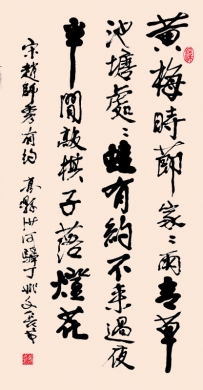 黄梅時節家〻雨青草
池塘處〻蛙有約不来過夜
半閒敲棋子落燈花
宋趙師秀有約